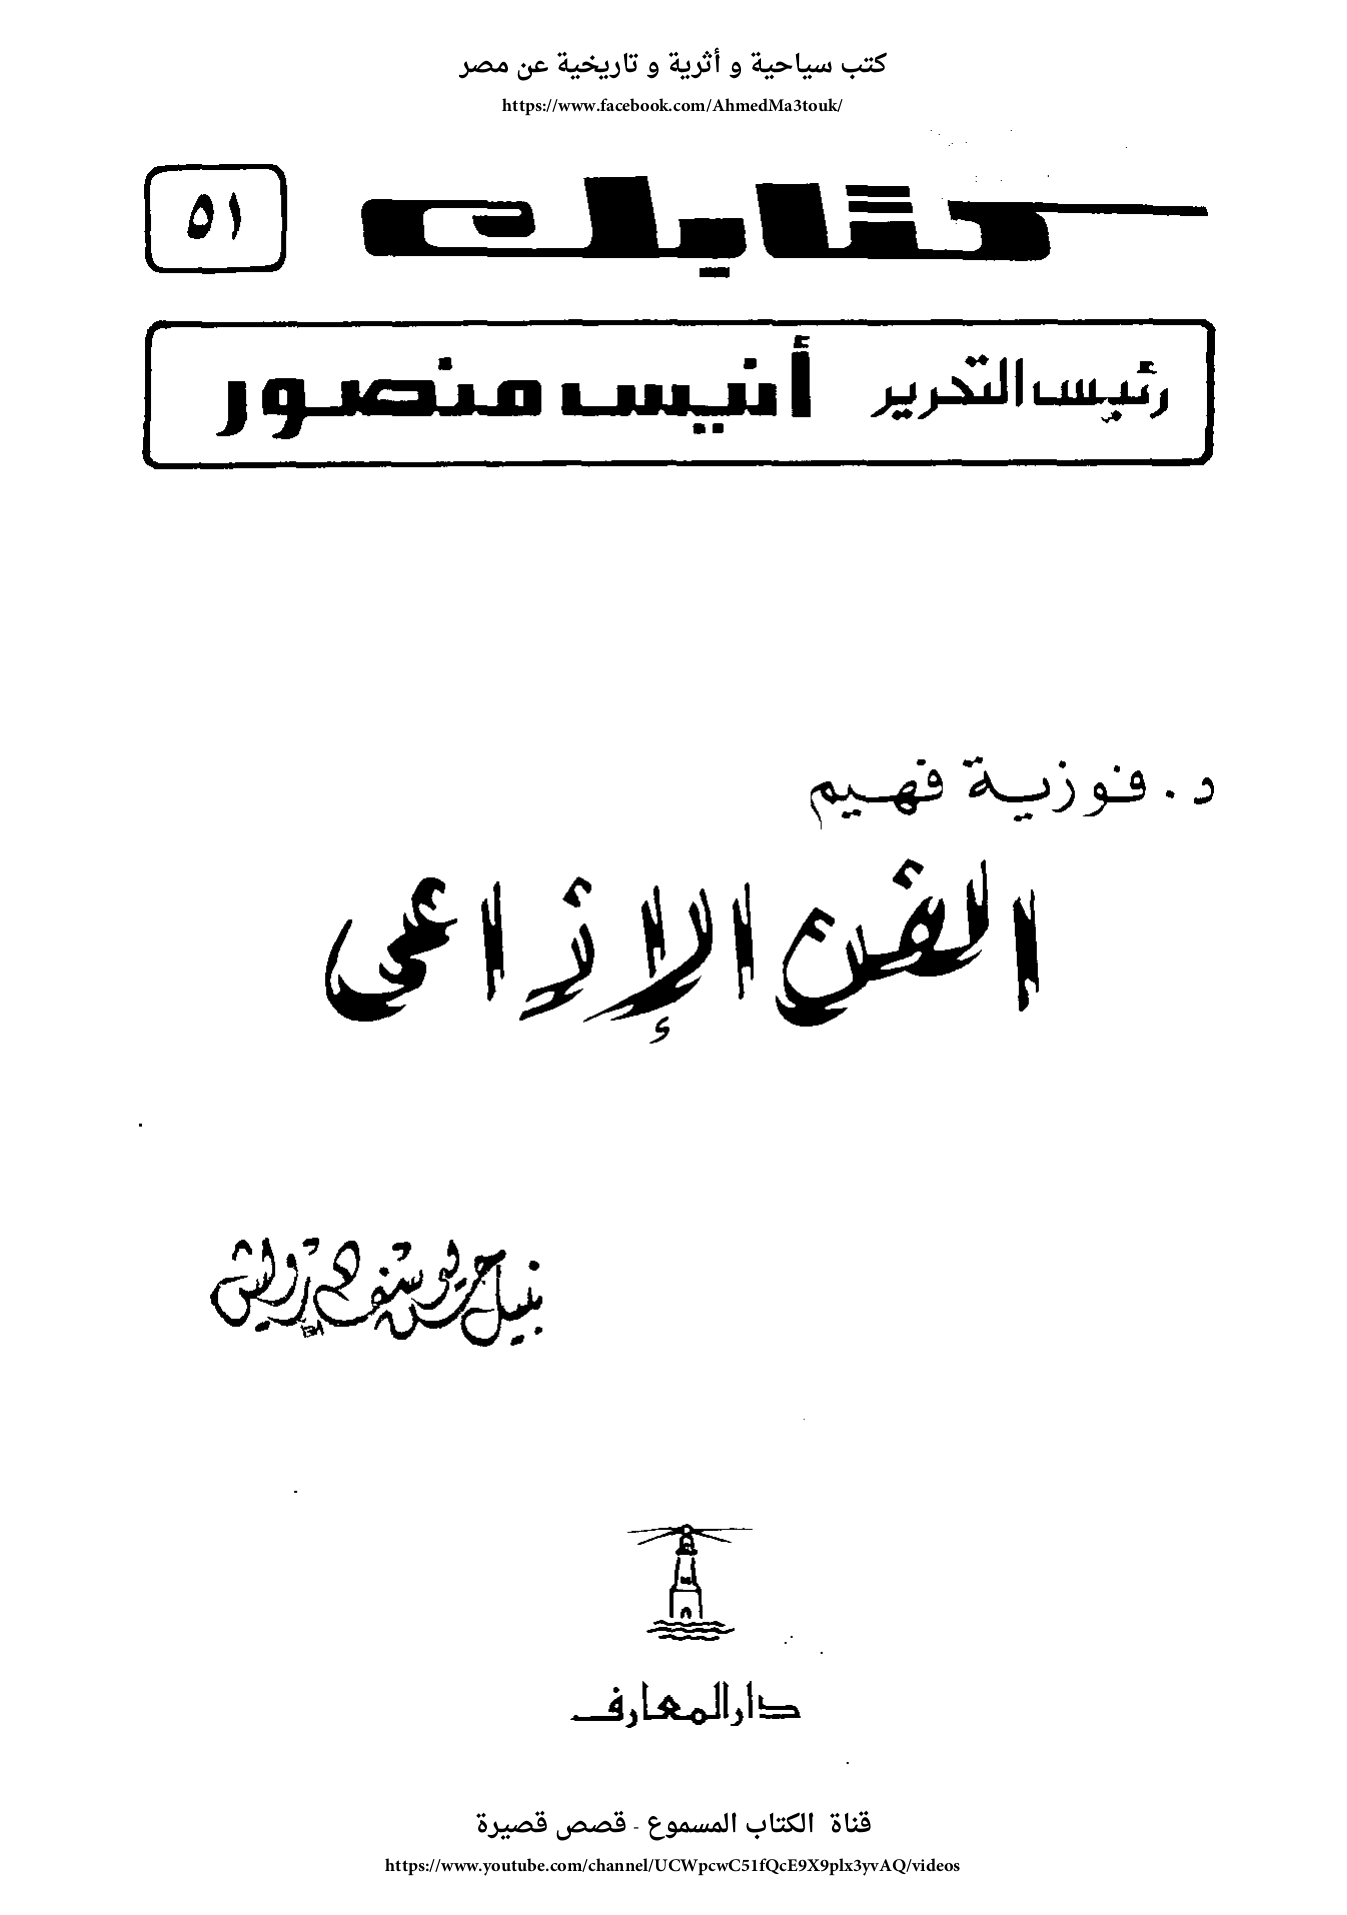 كتب سياحية و أثرية و تاريخية عن مصر
https://www.facebook.com/AhmedMa3touk/
كتابك
٥١
رئيس التحرير أنيس منصور
د. فوزية فهيم
الفن الإذاعى
نبيل حسن يوسف درويش
دار المعارف
قناة الكتاب المسموع - قصص قصيرة
https://www.youtube.com/channel/UCWpcwC51fQcE9X9plx3yvAQ/videos